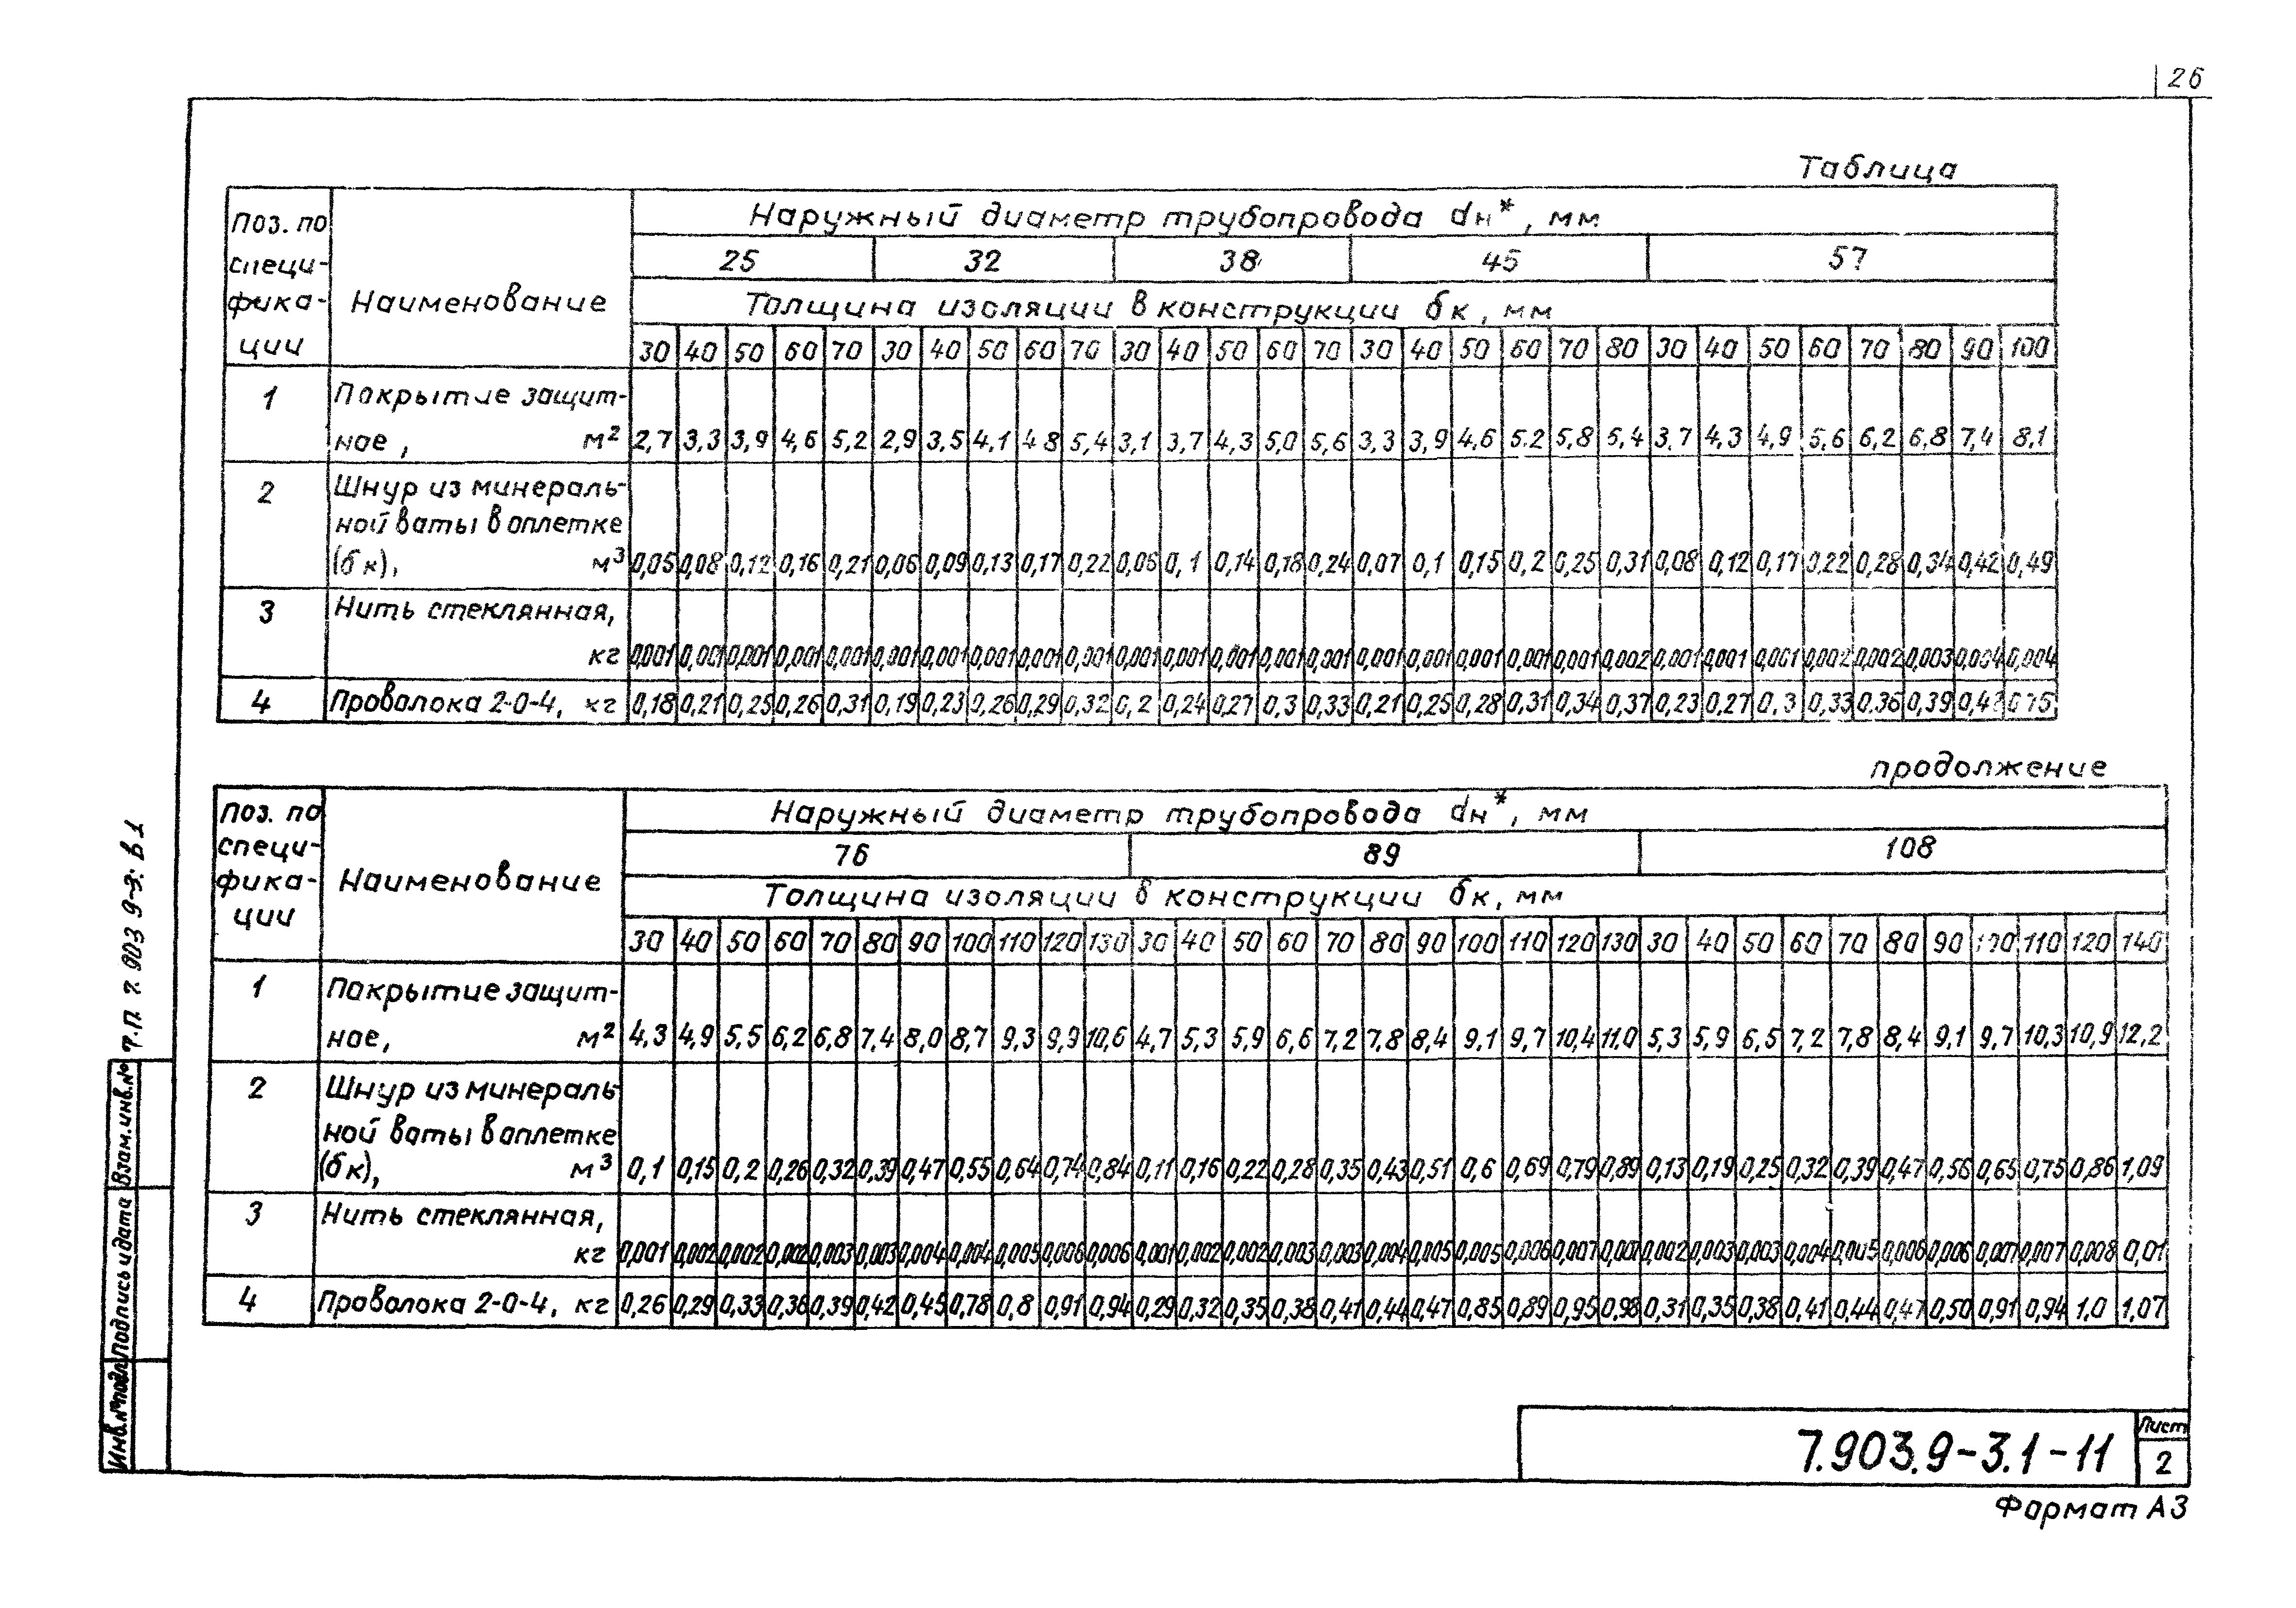 26
Таблица
Поз. по специ-фика-ции Наименование Наружный диаметр трубопровода dн*, мм
25 32 38 45 57
Толщина изоляции в конструкции бк, мм
30 40 50 60 70 30 40 50 60 70 30 40 50 60 70 30 40 50 60 70 80 30 40 50 60 70 80 90 100
1 Покрытие защит-
ное, м² 2,7 3,3 3,9 4,6 5,2 2,9 3,5 4,1 4,8 5,4 3,1 3,7 4,3 5,0 5,6 3,3 3,9 4,6 5,2 5,8 5,4 3,7 4,3 4,9 5,6 6,2 6,8 7,4 8,1
2 Шнур из минераль-
ной ваты в оплетке
(бк), м³ 0,05 0,08 0,12 0,16 0,21 0,06 0,09 0,13 0,17 0,22 0,06 0,1 0,14 0,18 0,24 0,07 0,1 0,15 0,2 0,25 0,31 0,08 0,12 0,17 0,22 0,28 0,34 0,42 0,49
3 Нить стеклянная,
кг 0,001 0,001 0,001 0,001 0,001 0,001 0,001 0,001 0,001 0,001 0,001 0,001 0,001 0,001 0,001 0,001 0,001 0,001 0,001 0,001 0,002 0,001 0,001 0,001 0,002 0,002 0,003 0,004 0,004
4 Проволока 2-0-4, кг 0,18 0,21 0,25 0,26 0,31 0,19 0,23 0,26 0,29 0,32 0,2 0,24 0,27 0,3 0,33 0,21 0,25 0,28 0,31 0,34 0,37 0,23 0,27 0,3 0,33 0,36 0,39 0,75
продолжение
Поз. по специ-фика-ции Наименование Наружный диаметр трубопровода dн*, мм
76 89 108
Толщина изоляции в конструкции бк, мм
30 40 50 60 70 80 90 100 110 120 130 30 40 50 60 70 80 90 100 110 120 130 30 40 50 60 70 80 90 100 110 120 140
1 Покрытие защит-
ное, м² 4,3 4,9 5,5 6,2 6,8 7,4 8,0 8,7 9,3 9,9 10,6 4,7 5,3 5,9 6,6 7,2 7,8 8,4 9,1 9,7 10,4 11,0 5,3 5,9 6,5 7,2 7,8 8,4 9,1 9,7 10,3 10,9 12,2
2 Шнур из минераль
ной ваты в оплетке
(бк), м³ 0,1 0,15 0,2 0,26 0,32 0,39 0,47 0,55 0,64 0,74 0,84 0,11 0,16 0,22 0,28 0,35 0,43 0,51 0,6 0,69 0,79 0,89 0,13 0,19 0,25 0,32 0,39 0,47 0,56 0,65 0,75 0,86 1,09
3 Нить стеклянная,
кг 0,001 0,002 0,002 0,002 0,003 0,003 0,004 0,004 0,005 0,006 0,006 0,001 0,002 0,002 0,003 0,003 0,004 0,005 0,005 0,006 0,007 0,002 0,003 0,003 0,004 0,005 0,006 0,006 0,007 0,007 0,008 0,01
4 Проволока 2-0-4, кг 0,26 0,29 0,33 0,36 0,39 0,42 0,45 0,78 0,8 0,91 0,94 0,29 0,32 0,35 0,38 0,41 0,44 0,47 0,85 0,89 0,95 0,98 0,31 0,35 0,38 0,41 0,44 0,47 0,50 0,91 0,94 1,0 1,07
Т.П. 7.903 9-3. В 1
Взам.инв.№
Подпись и дата
Инв.№ подл.
7.903.9-3.1-11
Лист
2
Формат А3